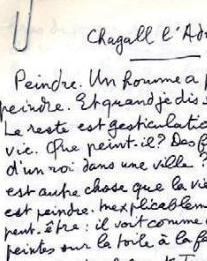 Chagall l'Ad
Peindre. Un homme a p
peindre. Et quand je dis
Le reste est gesticulatio
vie. Que peint-il? Des f
d'un roi dans une ville?
est autre chose que la vie
est peindre. Inexplicablem
peut-être : il voit comme
peintes sur la toile à la fa